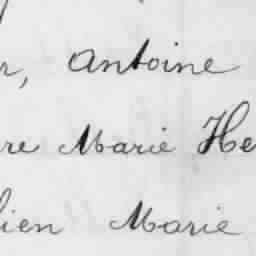 r, Antoine
re Marie He
lien Marie